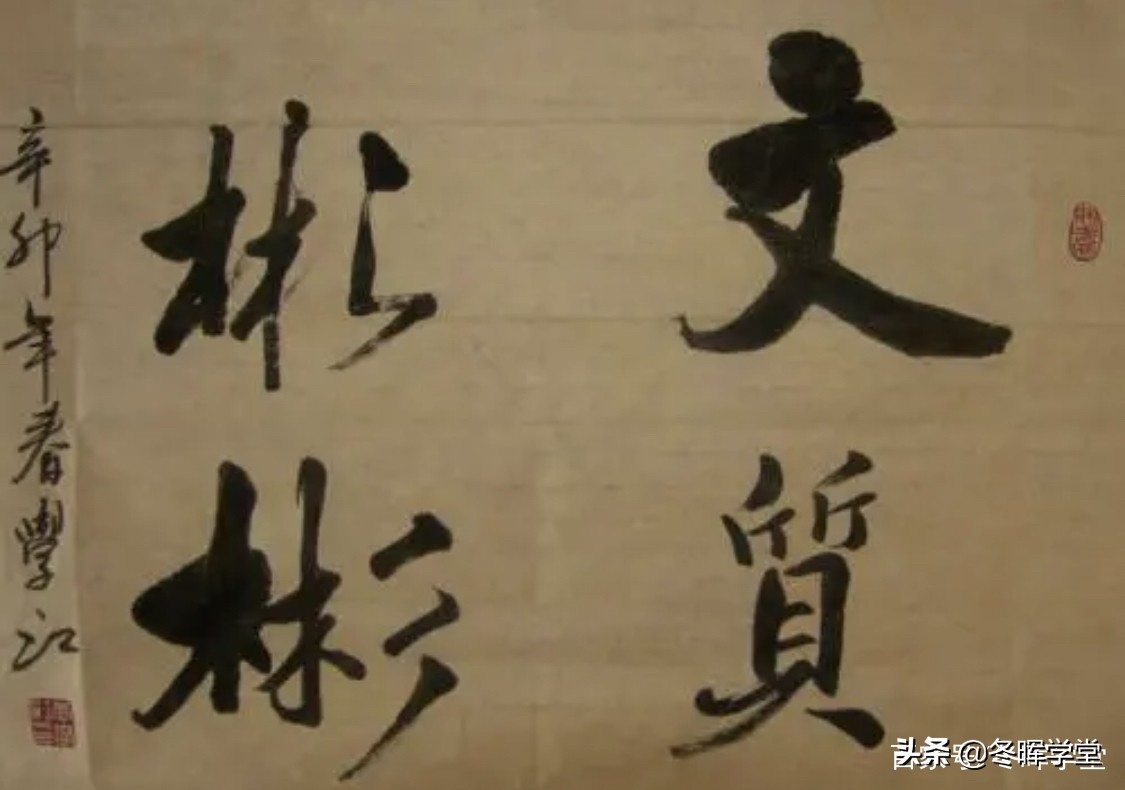 文質
彬彬
辛卯年春學江
头条 @冬晖学堂